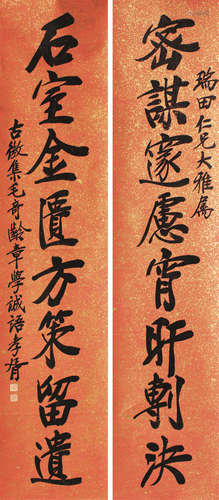 瑞田仁兄大雅属
密謀邃慮宵旰剸決
石室金匱方策留遺
古徵集毛奇齡章學誠語孝胥